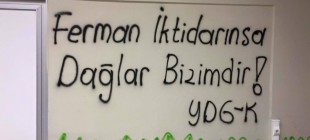 Ferman İktidarınsa
Dağlar Bizimdir!
YDG-K